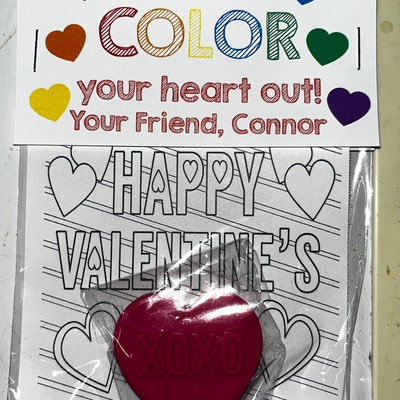 COLOR
your heart out!
Your Friend, Connor
HAPPY
VALENTINE'S
XOXO